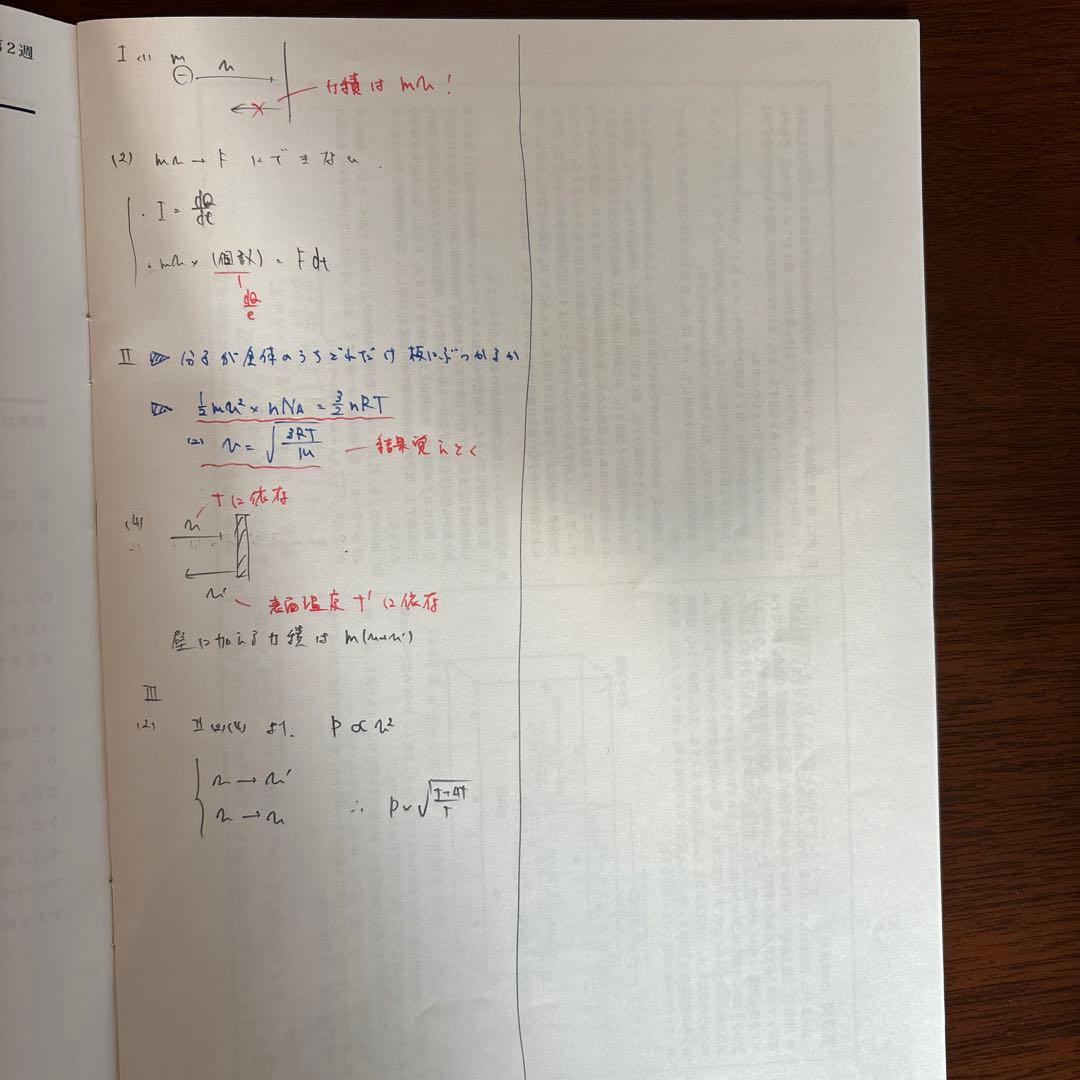 第2週
I (1) m u
力積は mu!
(2) mu → F にできない.
・I = dQ/dt
・mu × (個数) = F dt
dQ/e
II ▷ 分子が全体のうちどれだけ板にぶつかるか
▷ 1/2 mu² × nNA = 3/2 nRT
(2) u = √(3RT/M) — 結果覚えとく
Tに依存
(4) u
u'
表面温度 T' に依存
壁に加える力積は m(u+u')
III
(2) II(2)(4) より. P ∝ u²
u → u'
u → u ∴ P × √((T+ΔT)/T)